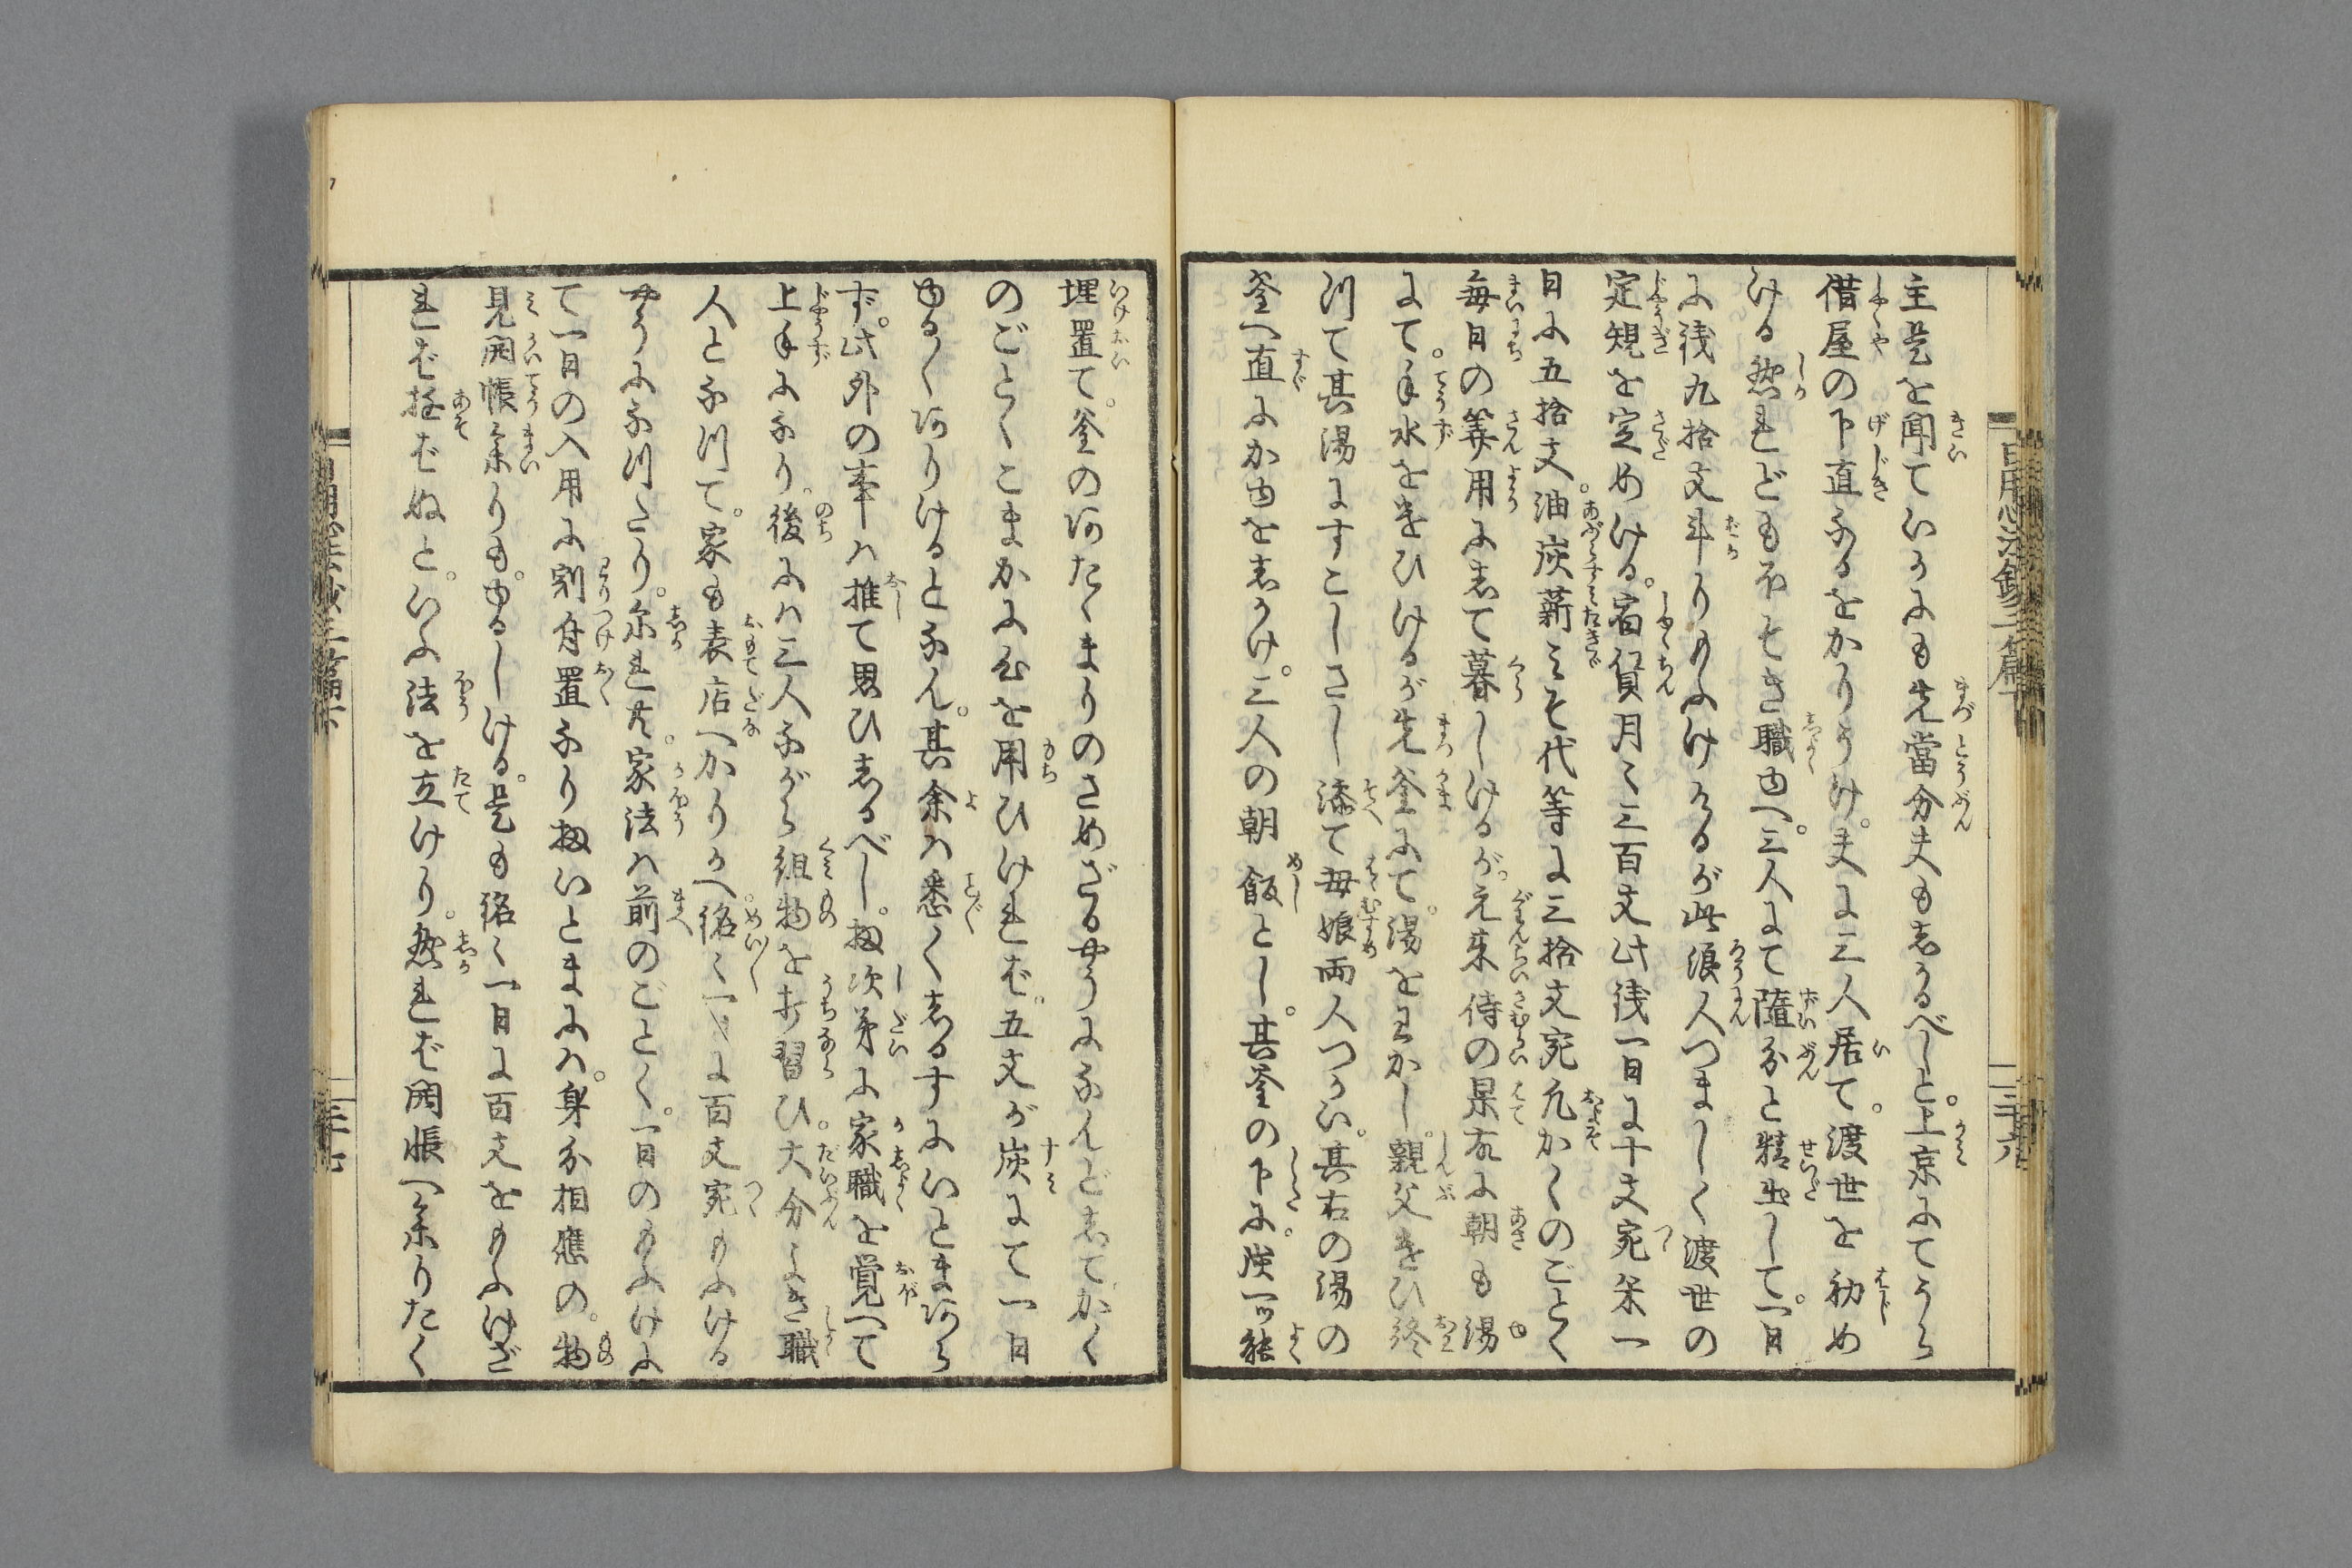 主是を聞ていかにも先當分夫もしかるべしと。上京にてうら
借屋の下直なるをかりうけ。夫に三人居て。渡世を初め
ける然れどもおそき職ゆへ。三人にて随分と精出して。一日
に銭九拾文斗りもふけけるが此浪人つましく渡世の
定規を定めける。宿賃月々三百文此銭一日に十文宛米一
日に五拾文。油炭薪みそ代等に三拾文宛凡かくのごとく
毎日の算用にして暮しけるが。元来侍の果故に朝も湯
にて。手水をきひけるが先釜にて。湯をわかし。親父きひ終
つて其湯にすこしさし添て母娘両人つかい。其右の湯の
釜へ直にかゆをしかけ。三人の朝飯とし。其釜の下に。炭一ツ能
埋置て。釜のあたゝまりのさめざるやうになんどしてかく
のごとくこまかに心を用ひければ。五文が炭にて一日
ゆるくありけるとなん。其余は悉くしるすにいとまあら
ず。此外の事は推て思ひしるべし。扨次第に家職を覚へて
上手になり。後には三人ながら組物を打習ひ。大分よき職
人となつて。家も表店へかりかへ。銘々一日に百文宛もふける
やうになつたり。尓れ共。家法は前のごとく。一日のもふけに
て一日の入用に割付置なり扨いとまには。身分相應の。物
見開帳参りも。ゆるしける。是も銘々一日に百文をもふけざ
れば遊ばぬと。いふ法を立けり。然れば開帳へ参りたく